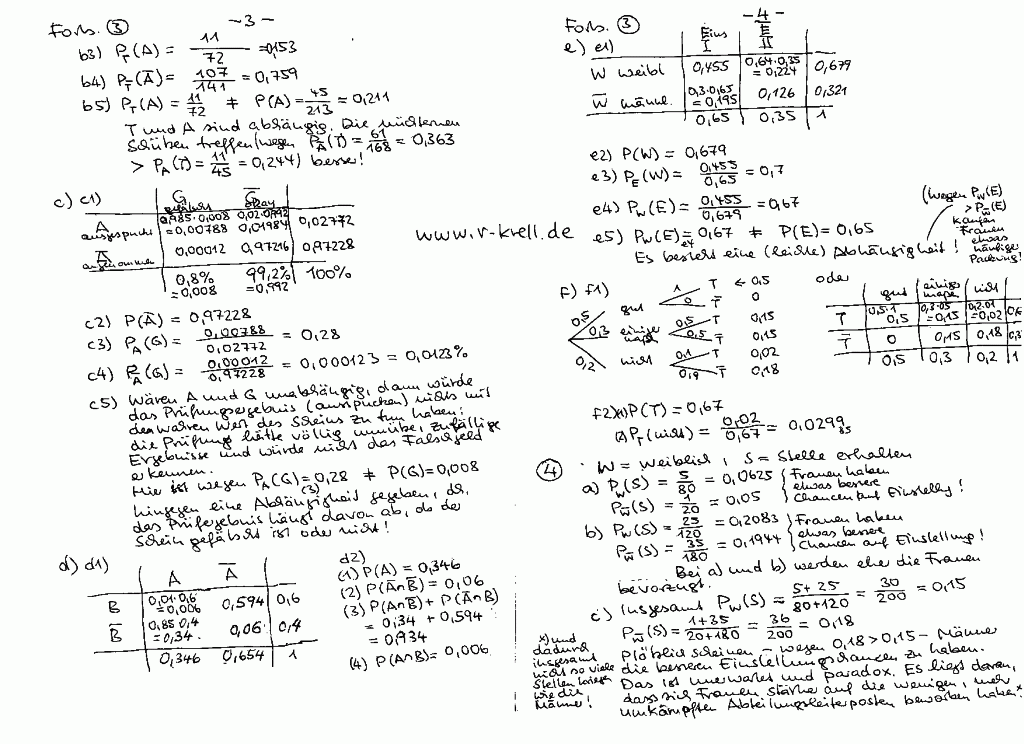 Forts. ③ -3-
b3) P_T(A) = 11/72 = 0,153
b4) P_T̅(A̅) = 107/141 = 0,759
b5) P_T(A) = 11/72 ≠ P(A) = 45/213 = 0,211
T und A sind abhängig. Die nüchternen
Schüben treffen (wegen P_A̅(T) = 61/168 = 0,363
> P_A(T) = 11/45 = 0,244) besser!
c) c1)
G gefälscht G̅ okay
A ausgespuckt 0,985·0,008 = 0,00788 0,02·0,992 0,01984 0,02772
A̅ angenommen 0,00012 0,97216 0,97228
0,8% = 0,008 99,2% = 0,992 100%
c2) P(A̅) = 0,97228
c3) P_A(G) = 0,00788/0,02772 = 0,28
c4) P_A̅(G) = 0,00012/0,97228 = 0,000123 = 0,0123%
c5) Wären A und G unabhängig, dann würde
das Prüfungsergebnis (ausspucken) nichts mit
dem wahren Wert des Scheins zu tun haben:
die Prüfung hätte völlig zufällige
Ergebnisse und würde nicht das Falschgeld
erkennen.
Hier ist wegen P_A(G) = 0,28 ≠ P(G) = 0,008
(3)
hingegen eine Abhängigkeit gegeben, d.h.
das Prüfergebnis hängt davon ab, ob der
Schein gefälscht ist oder nicht!
d) d1)
A A̅
B 0,01·0,6 = 0,006 0,594 0,6
B̅ 0,85·0,4 = 0,34 0,06 0,4
0,346 0,654 1
d2)
(1) P(A) = 0,346
(2) P(A̅∩B̅) = 0,06
(3) P(A∩B̅) + P(A̅∩B)
= 0,34 + 0,594
= 0,934
(4) P(A∩B) = 0,006
www.r-krell.de
Forts. ③ -4-
e) e1)
Eins I E̅ II
W weibl 0,455 0,64·0,35 = 0,224 0,679
W̅ männl. 0,3·0,65 = 0,195 0,126 0,321
0,65 0,35 1
e2) P(W) = 0,679
e3) P_E(W) = 0,455/0,65 = 0,7
e4) P_W(E) = 0,455/0,679 = 0,67
e5) P_W(E) = 0,67 ≠ P(E) = 0,65
e4
Es besteht eine (leichte) Abhängigkeit!
(wegen P_W(E)
> P_W̅(E)
kaufen
Frauen
etwas
häufiger
Packung!
f) f1)
0,5 gut 1 T ← 0,5
0 T̅ 0
0,3 einigermaßen 0,5 T 0,15
0,5 T̅ 0,15
0,2 nicht 0,1 T 0,02
0,9 T̅ 0,18
oder
gut einigermaßen nicht
T 0,5·1 0,5 0,3·0,5 = 0,15 0,2·0,1 = 0,02
T̅ 0 0,15 0,18
0,5 0,3 0,2 1
f2) (1) P(T) = 0,67
(2) P_T(nicht) = 0,02/0,67 = 0,0299
④ W = Weiblich, S = Stelle erhalten
a) P_W(S) = 5/80 = 0,0625 } Frauen haben
etwas bessere
P_W̅(S) = 1/20 = 0,05 Chancen auf Einstellg!
b) P_W(S) = 25/120 = 0,2083 } Frauen haben
etwas bessere
P_W̅(S) = 35/180 = 0,1944 Chancen auf Einstellung!
Bei a) und b) werden eher die Frauen
bevorzugt.
c) Insgesamt P_W(S) = 5+25/80+120 = 30/200 = 0,15
P_W̅(S) = 1+35/20+180 = 36/200 = 0,18
Plötzlich scheinen – wegen 0,18 > 0,15 – Männer
die besseren Einstellungschancen zu haben.
Das ist unerwartet und paradox. Es liegt daran,
dass sich Frauen stärker auf die wenigen, mehr
umkämpften Abteilungsleiterposten beworben haben*)
*) und
dadurch
insgesamt
nicht so viele
Stellen kriegen
wie die
Männer!